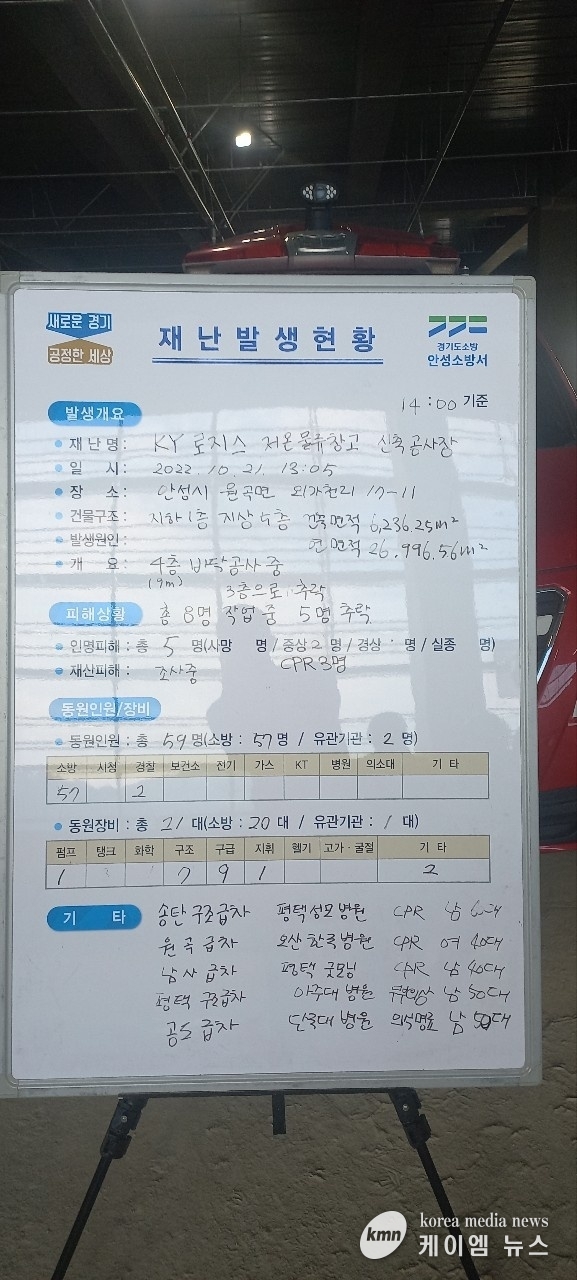 새로운 경기
공정한 세상
재난발생현황
경기도소방
안성소방서
14:00 기준
발생개요
재난명: KY로지스 저온물류창고 신축공사장
일 시: 2022. 10. 21. 13:05
장 소: 안성시 원곡면 외가천리 17-11
건물구조: 지하1층 지상5층 건축면적 6,236.25m²
발생원인: 연면적 26,996.56m²
개 요: 4층 바닥공사 중
(9m) 3층으로 추락
피해상황 총 8명 작업 중 5명 추락
인명피해: 총 5 명(사망 명 / 중상 2 명 / 경상 명 / 실종 명)
재산피해: 조사중 CPR 3명
동원인원/장비
동원인원: 총 59명(소방: 57명 / 유관기관: 2 명)
소방 시청 경찰 보건소 전기 가스 KT 병원 의소대 기 타
57 2
동원장비: 총 21 대(소방: 20 대 / 유관기관: 1 대)
펌프 탱크 화학 구조 구급 지휘 헬기 고가·굴절 기 타
1 7 9 1 2
기 타 송탄 구조급차 평택성모병원 CPR 남
원곡 급차 오산 한국병원 CPR 여 40대
남사 급차 평택 굿모닝 CPR 남 40대
평택 구조급차 아주대 병원 남 50대
공도 급차 단국대 병원 의식명료 남 50대
kmn korea media news
케이엠 뉴스